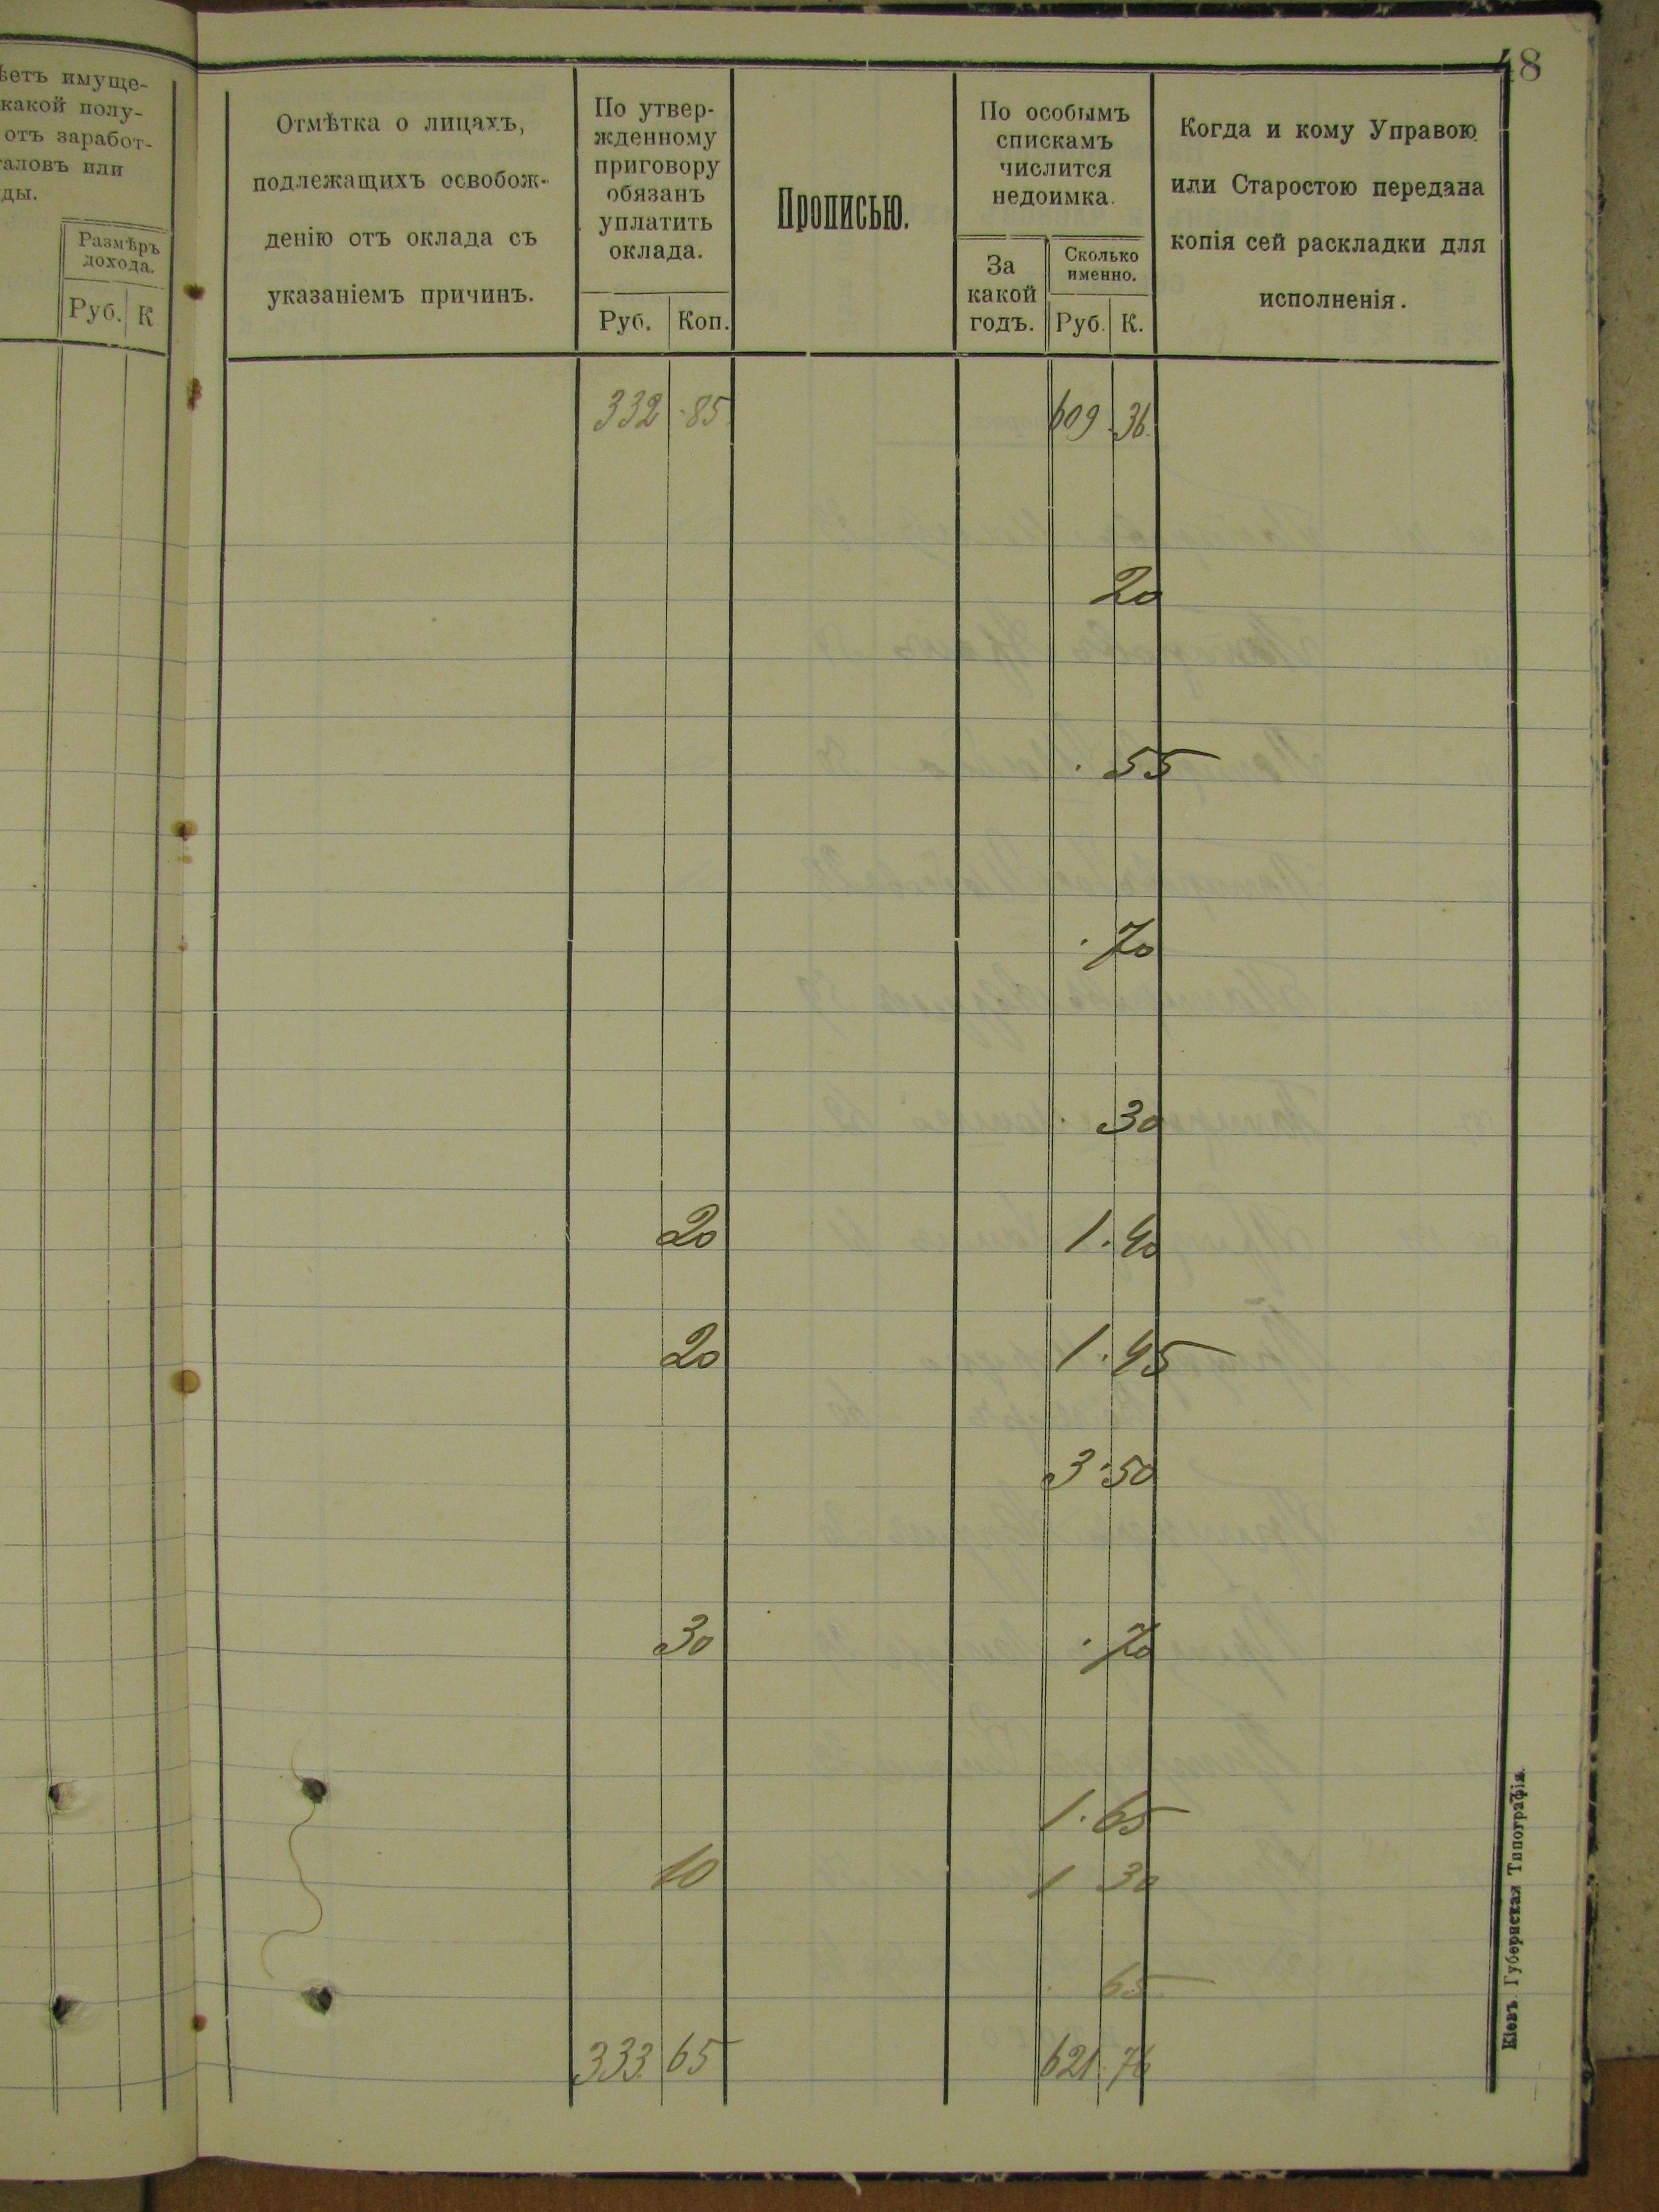 ѣетъ имуще-
какой полу-
отъ заработ-
таловъ или
ды.
Размѣръ
дохода.
Руб. К
48
Отмѣтка о лицахъ,
подлежащихъ освобож-
денію отъ оклада съ
указаніемъ причинъ.
По утвер-
жденному
приговору
обязанъ
уплатить
оклада.
Руб. Коп.
Прописью.
По особымъ
спискамъ
числится
недоимка.
За
какой
годъ.
Сколько
именно.
Руб. К.
Когда и кому Управою
или Старостою передана
копія сей раскладки для
исполненія.
332 85 609 36
20
55
70
30
20 1 40
20 1 45
3 50
30 70
1 65
10 1 30
65
333 65 621 76
Кіевъ. Губернская Типографія.